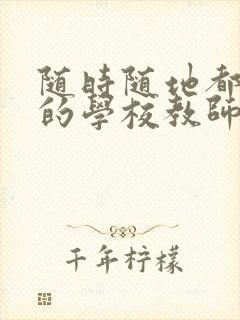 随時随地都
的學校教師
千年柠檬